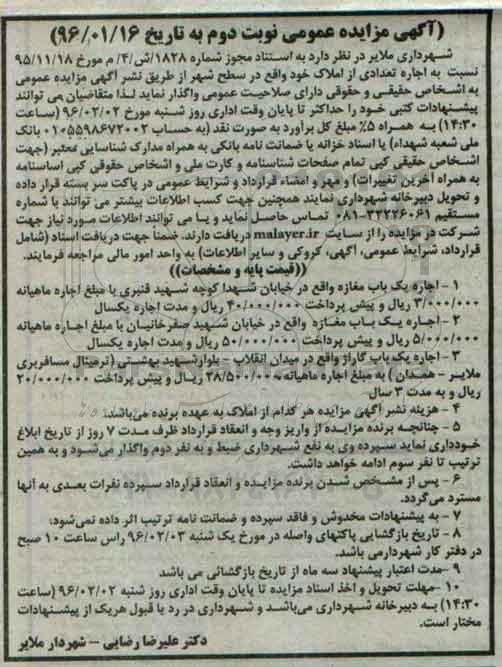 (آگهی مزایده عمومی نوبت دوم به تاریخ ۹۶/۰۱/۱۶)
شهرداری ملایر در نظر دارد به استناد مجوز شماره ۱۸۲۸/ش/۴/م مورخ ۹۵/۱۱/۱۸
نسبت به اجاره تعدادی از املاک خود واقع در سطح شهر از طریق نشر آگهی مزایده عمومی
به اشخاص حقیقی و حقوقی دارای صلاحیت عمومی واگذار نماید لذا متقاضیان می توانند
پیشنهادات کتبی خود را حداکثر تا پایان وقت اداری روز شنبه مورخ ۹۶/۰۲/۰۲ (ساعت
۱۴:۳۰) به همراه ۵٪ مبلغ کل برآورد به صورت نقد (به حساب ۰۱۰۵۵۹۸۶۷۲۰۰۲ بانک
ملی شعبه شهداء) یا اسناد خزانه یا ضمانت نامه بانکی به همراه مدارک شناسایی معتبر (جهت
اشخاص حقیقی کپی تمام صفحات شناسنامه و کارت ملی و اشخاص حقوقی کپی اساسنامه
به همراه آخرین تغییرات) و مهر و امضاء قرارداد و شرایط عمومی در پاکت سر بسته قرار داده
و تحویل دبیرخانه شهرداری نمایند همچنین جهت کسب اطلاعات بیشتر می توانند با شماره
مستقیم ۳۲۲۲۶۰۶۱-۰۸۱ تماس حاصل نماید و یا می توانند اطلاعات مورد نیاز جهت
شرکت در مزایده را از سایت malayer.ir دریافت دارند. ضمنا جهت دریافت اسناد (شامل
قرارداد، شرایط عمومی، آگهی، کروکی و سایر اطلاعات) به واحد امور مالی مراجعه فرمایند.
((قیمت پایه و مشخصات))
۱ - اجاره یک باب مغازه واقع در خیابان شهدا کوچه شهید قنبری با مبلغ اجاره ماهیانه
۳/۰۰۰/۰۰۰ ریال و پیش پرداخت ۴۰/۰۰۰/۰۰۰ ریال و مدت اجاره یکسال
۲ - اجاره یک باب مغازه واقع در خیابان شهید صفرخانیان با مبلغ اجاره ماهیانه
۵/۰۰۰/۰۰۰ ریال و پیش پرداخت ۵۰/۰۰۰/۰۰۰ ریال و مدت اجاره یکسال
۳ - اجاره یک باب گاراژ واقع در میدان انقلاب - بلوارشهید بهشتی (ترمینال مسافربری
ملایر - همدان) به مبلغ اجاره ماهیانه ۳۸/۵۰۰/۰۰۰ ریال و پیش پرداخت ۲۰/۰۰۰/۰۰۰
ریال و به مدت ۳ سال
۴ - هزینه نشر آگهی مزایده هر کدام از املاک به عهده برنده می‌باشد.
۵ - چنانچه برنده مزایده از واریز وجه و انعقاد قرارداد ظرف مدت ۷ روز از تاریخ ابلاغ
خودداری نماید سپرده وی به نفع شهرداری ضبط و به نفر دوم واگذار می‌شود و به همین
ترتیب تا نفر سوم ادامه خواهد داشت.
۶ - پس از مشخص شدن برنده مزایده و انعقاد قرارداد سپرده نفرات بعدی به آنها
مسترد می‌گردد.
۷ - به پیشنهادات مخدوش و فاقد سپرده و ضمانت نامه ترتیب اثر داده نمی‌شود.
۸ - تاریخ بازگشایی پاکتهای واصله در مورخ یک شنبه ۹۶/۰۲/۰۳ راس ساعت ۱۰ صبح
در دفتر کار شهردارمی باشد.
۹ -مدت اعتبار پیشنهاد سه ماه از تاریخ بازگشائی می باشد
۱۰ -مهلت تحویل و اخذ اسناد مزایده تا پایان وقت اداری روز شنبه ۹۶/۰۲/۰۲ (ساعت
۱۴:۳۰) به دبیرخانه شهرداری می‌باشد و شهرداری مختار در رد یا قبول هریک از پیشنهادات
مختار است.
دکتر علیرضا رضایی - شهردار ملایر